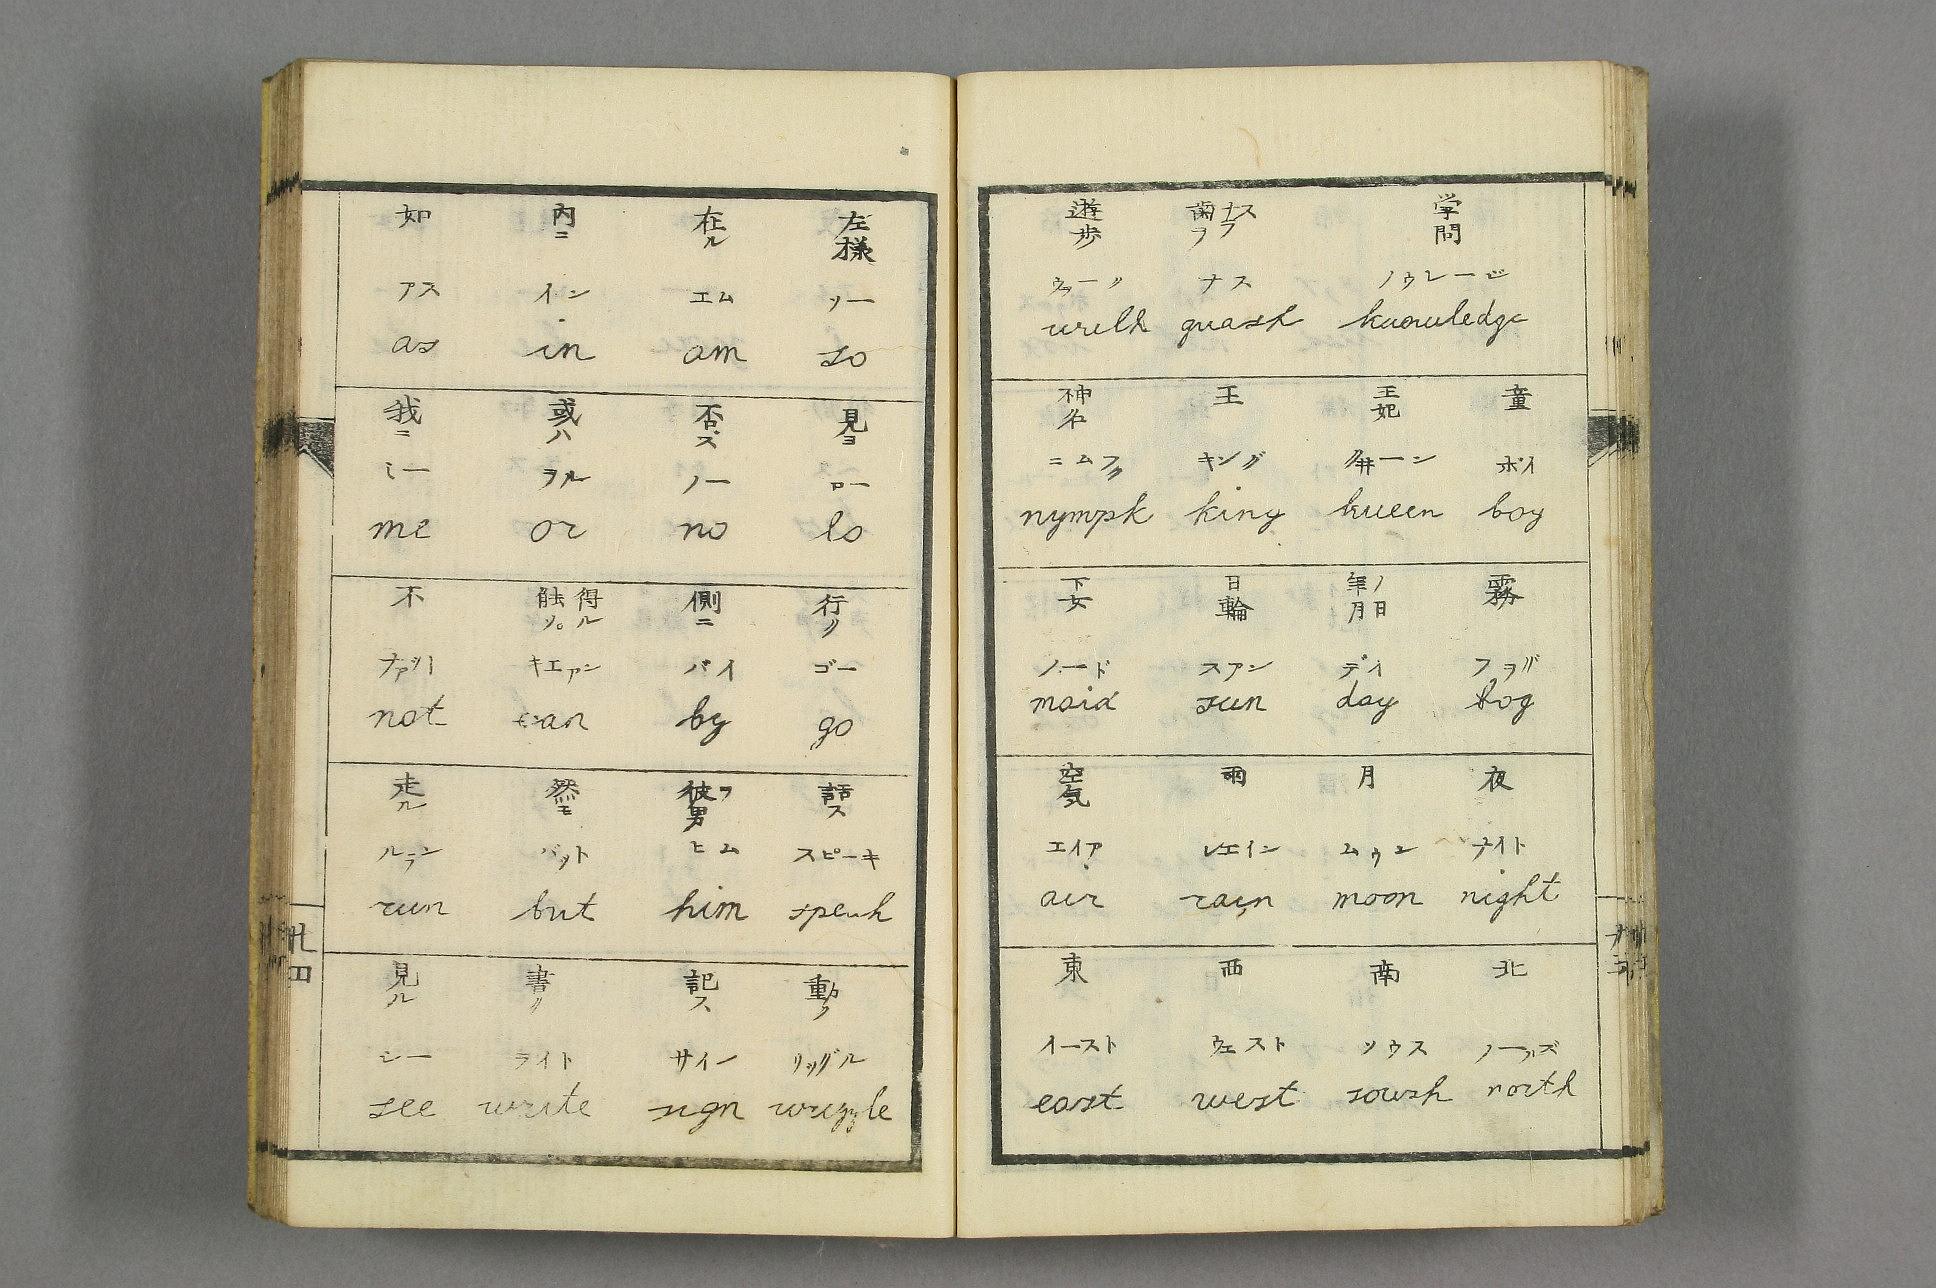 学問 ノウレージ knowledge
歯ヲナラス ナス gnash
遊歩 ウヲーク wrilk
童 ボイ boy
王妃 ク井ーン kueen
王 キング king
神名 ニムフ nympk
霧 フヲグ fog
年月ノ日 デイ day
日輪 スアン sun
下女 maid
夜 ナイト night
月 ムウン moon
雨 レエイン rain
空気 エイア air
北 north
南 ソウス sowsh
西 ウエスト west
東 イースト east
左様 ソー so
在ル エム am
内ニ イン in
如 アス as
見ヨ ロー lo
否ズ ノー no
或ハ ヲル or
我ニ ミー me
行ク ゴー go
側ニ バイ by
得ル 能ソ。 キエアン can
不 not
語ス スピーキ speak
彼男ヲ ヒム him
然モ バット but
走ル ルラン run
動ク リッグル wrizzle
記ス サイン sign
書ク ライト write
見ル シー see
廿四